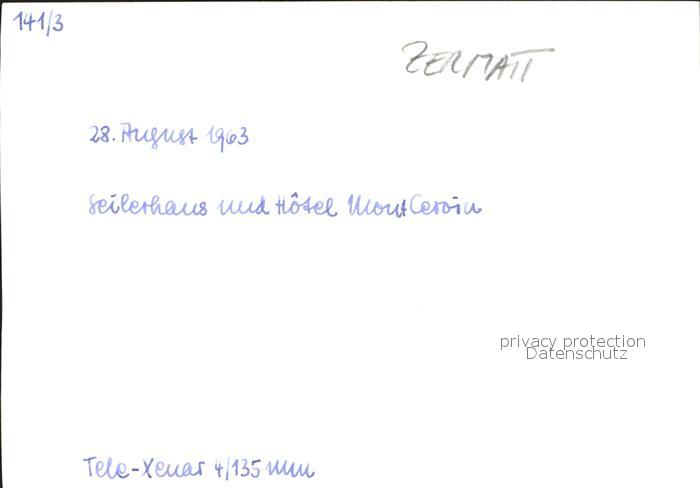 141/3
ZERMATT
28. August 1963
Seilerhaus und Hôtel Mont Cervin
privacy protection
Datenschutz
Tele-Xenar 4/135 mm